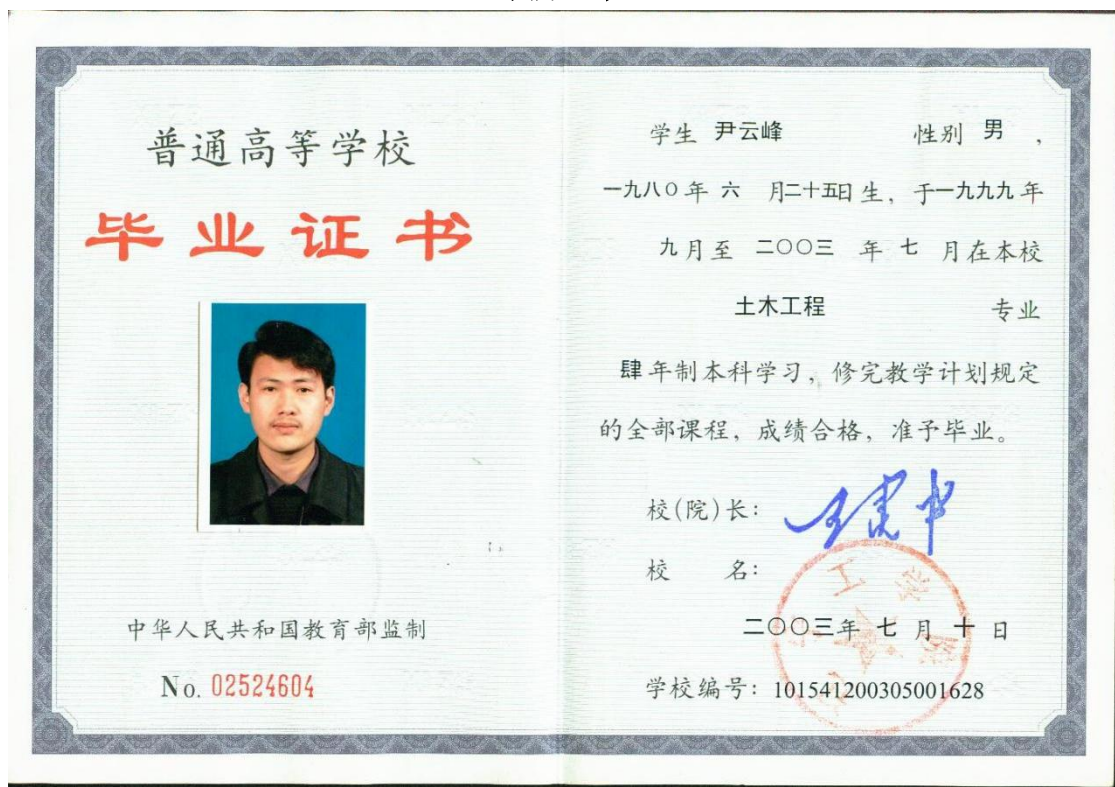 普通高等学校
毕业证书
中华人民共和国教育部监制
No. 02524604
学生 尹云峰 性别 男 ,
一九八〇年 六 月二十五日生, 于一九九九年
九月至 二〇〇三 年 七 月在本校
土木工程 专业
肆年制本科学习, 修完教学计划规定
的全部课程, 成绩合格, 准予毕业。
校(院)长:
校 名:
工学院
二〇〇三年 七 月 十 日
学校编号: 101541200305001628